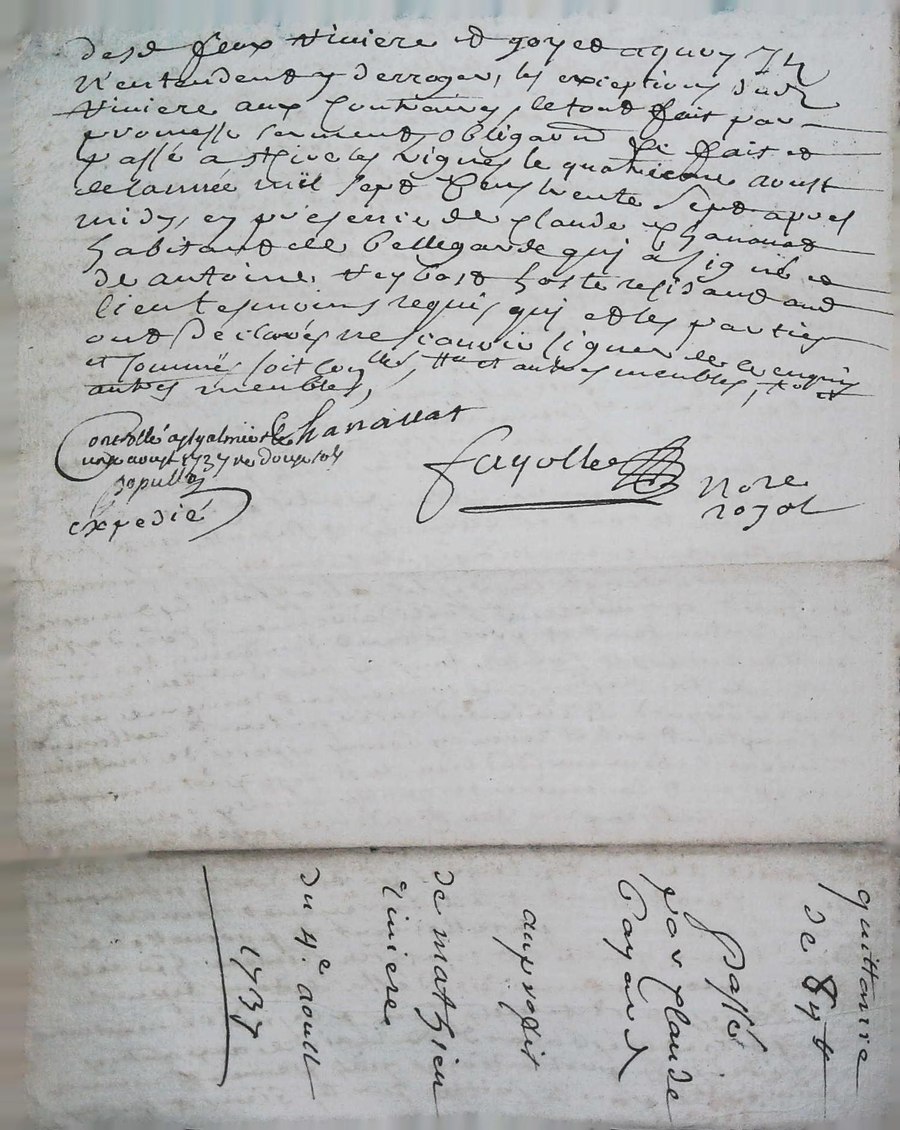 desd feux Riviere et goyet aquoy Ilz
n'entendent y derroger, les exceptions dud
Riviere aux Contraires, le tout fait par
promesse serment obligaōn Ce fait et
passé a st Cire les vignes le quatrieme aoust
de lannée mil sept Cens trente sept apres
midy, en presence de Claude Chanavat
habitant de Bellegarde qui a signé et
de antoine hoste residant aud
lieu tesmoins requis qui et les parties
ont declarés ne scavoir signer de ce enquis
et sommés soit et autres meubles,
autres meubles,
Chanavat
Controllé a st galmier le
aoust 1737 Re douze sols
expedié
fayolle Nore
royal
quittance
de 84 ₶
passée
par Claude
Payand
au proffit
de mathieu
Riviere
du 4.e aoust
1737